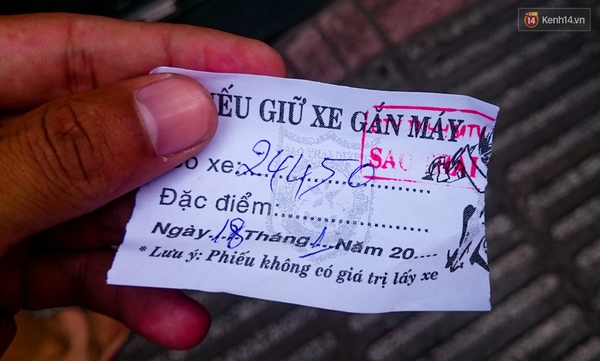 14 Kenh14.vn
ẾU GIỮ XE GẮN MÁY
SAO
ố xe:24450
Đặc điểm
Ngày 18 Tháng 1 Năm 20
* Lưu ý: Phiếu không có giá trị lấy xe